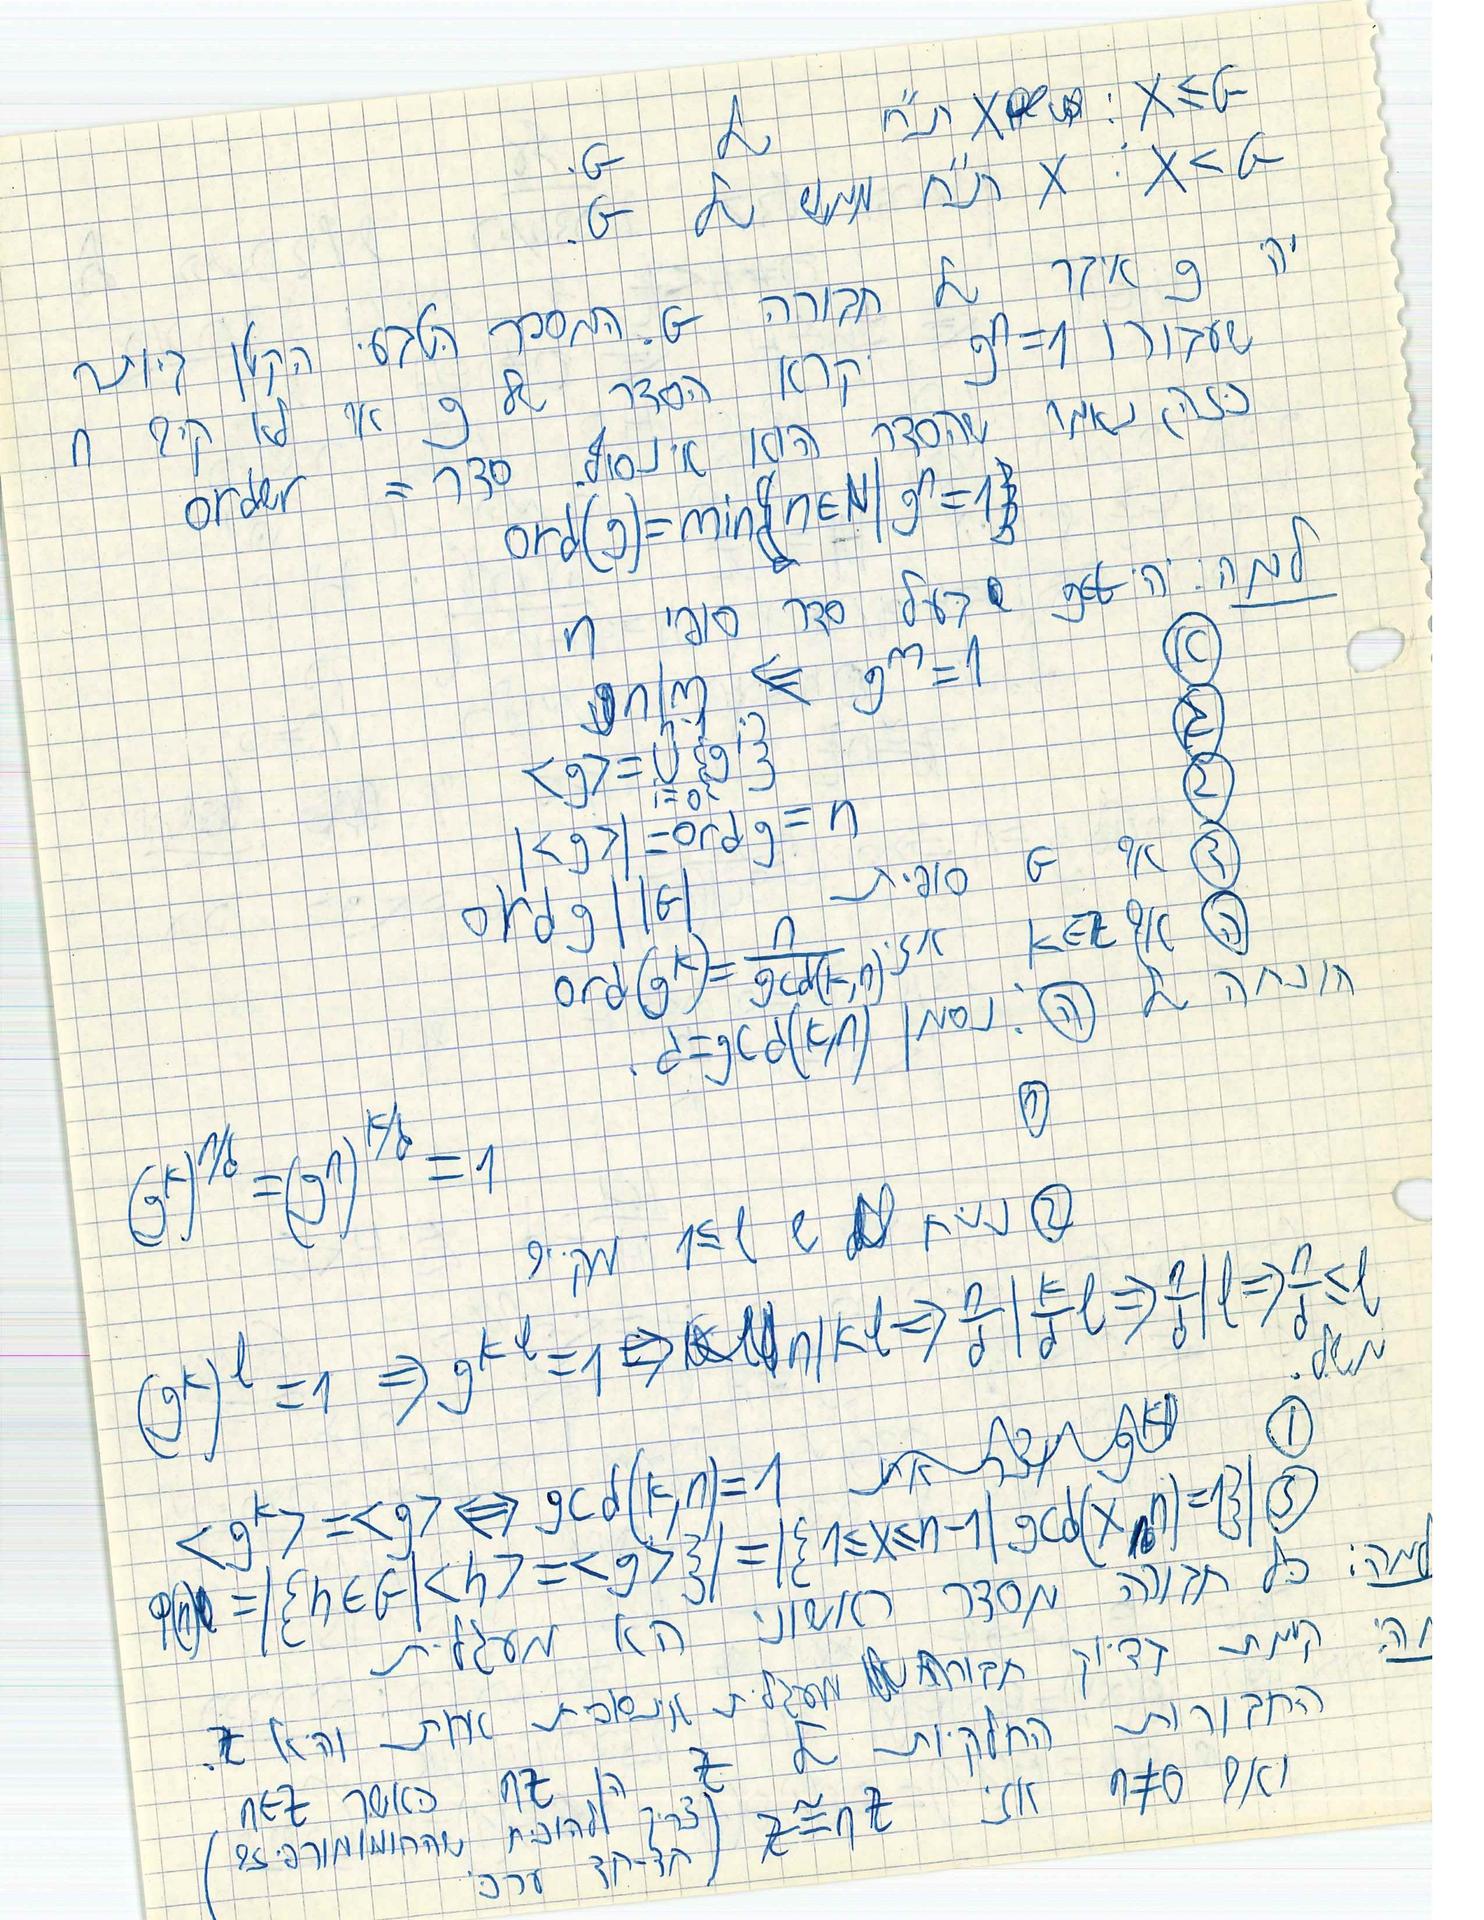 X≤G : X ת"ח של G.
X<G : X ת"ח ממש של G.
יהי g איבר של חבורה G. המספר הטבעי הקטן ביותר n
שעבורו gⁿ=1 יקרא הסדר של g אם לא קיים
כזה, נאמר שהסדר הוא אינסוף. סדר = order
ord(g)=min{n∈N|gⁿ=1}
למה: יהי g∈G בעל סדר סופי n
(א) gᵐ=1 ⇐ n|m
(ב) <g>=⋃ᵢ₌₀ⁿ⁻¹{gⁱ}
(ג) |<g>|=ord g=n
(ד) אם G סופית ord g||G|
(ה) אם k∈Z אזי ord(gᵏ)=n/gcd(k,n)
הוכחה של (ה): נסמן d=gcd(k,n).
(1)
(gᵏ)^(n/d)=(gⁿ)^(k/d)=1
(2) נניח ש l≥1 מקיים
(gᵏ)ˡ=1 ⇒ gᵏˡ=1 ⇒ n|kl ⇒ n/d|k/d l ⇒ n/d|l ⇒ n/d≤l
משל.
(ו) gᵏ יוצר את
<gᵏ>=<g> ⇔ gcd(k,n)=1
(ז) φ(n)=|{h∈G|<h>=<g>}|=|{1≤x≤n-1|gcd(x,n)=1}|
למה: כל חבורה מסדר ראשוני היא מעגלית
קיימת בדיוק חבורה מעגלית אינסופית אחת והיא Z.
החבורות החלקיות של Z הן nZ כאשר n∈Z
ואם n≠0 אזי Z≅nZ (צריך להוכיח שההומומורפיזם
חד-חד ערכי)